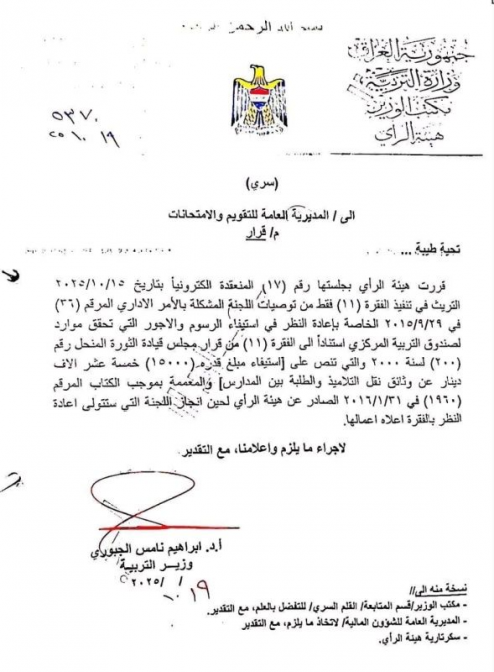 بسم الله الرحمن الرحيم
جمهورية العراق
وزارة التربية
مكتب الوزير
هيئة الرأي
٥٣٧٠
١٩
(سري)
الى / المديرية العامة للتقويم والامتحانات
م/ قرار
تحية طيبة ...
قررت هيئة الرأي بجلستها رقم (١٧) المنعقدة الكترونياً بتاريخ ٢٠٢٥/١٠/١٥
التريث في تنفيذ الفقرة (١١) فقط من توصيات اللجنة المشكلة بالأمر الاداري المرقم (٣٦)
في ٢٠١٥/٩/٢٩ الخاصة بإعادة النظر في استيفاء الرسوم والاجور التي تحقق موارد
لصندوق التربية المركزي استناداً الى الفقرة (١١) من قرار مجلس قيادة الثورة المنحل رقم
(٢٠٠) لسنة ٢٠٠٠ والتي تنص على [استيفاء مبلغ قدره (١٥٠٠٠) خمسة عشر الاف
دينار عن وثائق نقل التلاميذ والطلبة بين المدارس] والمعممة بموجب الكتاب المرقم
(١٩٦٠) في ٢٠١٦/١/٣١ الصادر عن هيئة الرأي لحين انجاز اللجنة التي ستتولى اعادة
النظر بالفقرة اعلاه اعمالها.
لاجراء ما يلزم واعلامنا، مع التقدير
أ.د. ابراهيم نامس الجبوري
وزير التربية
٢٠٢٥/ /
١٩ ١٠
نسخة منه الى//
- مكتب الوزير/ قسم المتابعة/ القلم السري/ للتفضل بالعلم، مع التقدير.
- المديرية العامة للشؤون المالية/ لاتخاذ ما يلزم، مع التقدير
- سكرتارية هيئة الرأي.